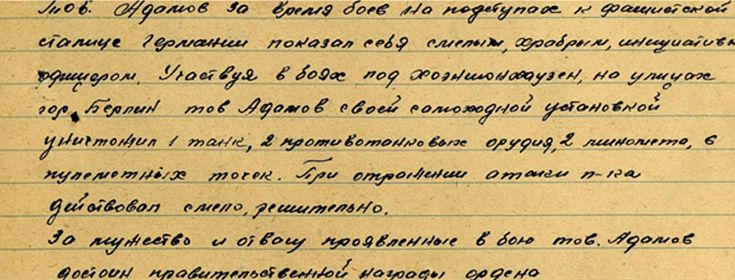 Тов. Адамов за время боев на подступах к фашистской
сталице Германии показал себя смелым, храбрым, инициативн
офицером. Участвуя в боях под Хоэншонхаузен, на улицах
гор. Берлин тов Адамов своей самоходной установкой
уничтожил 1 танк, 2 противотанковых орудия, 2 миномета, 6
пулеметных точек. При отражении атаки п-ка
действовал смело, решительно.
За мужество и отвагу проявленные в бою тов. Адамов
достоин правительственной награды ордена